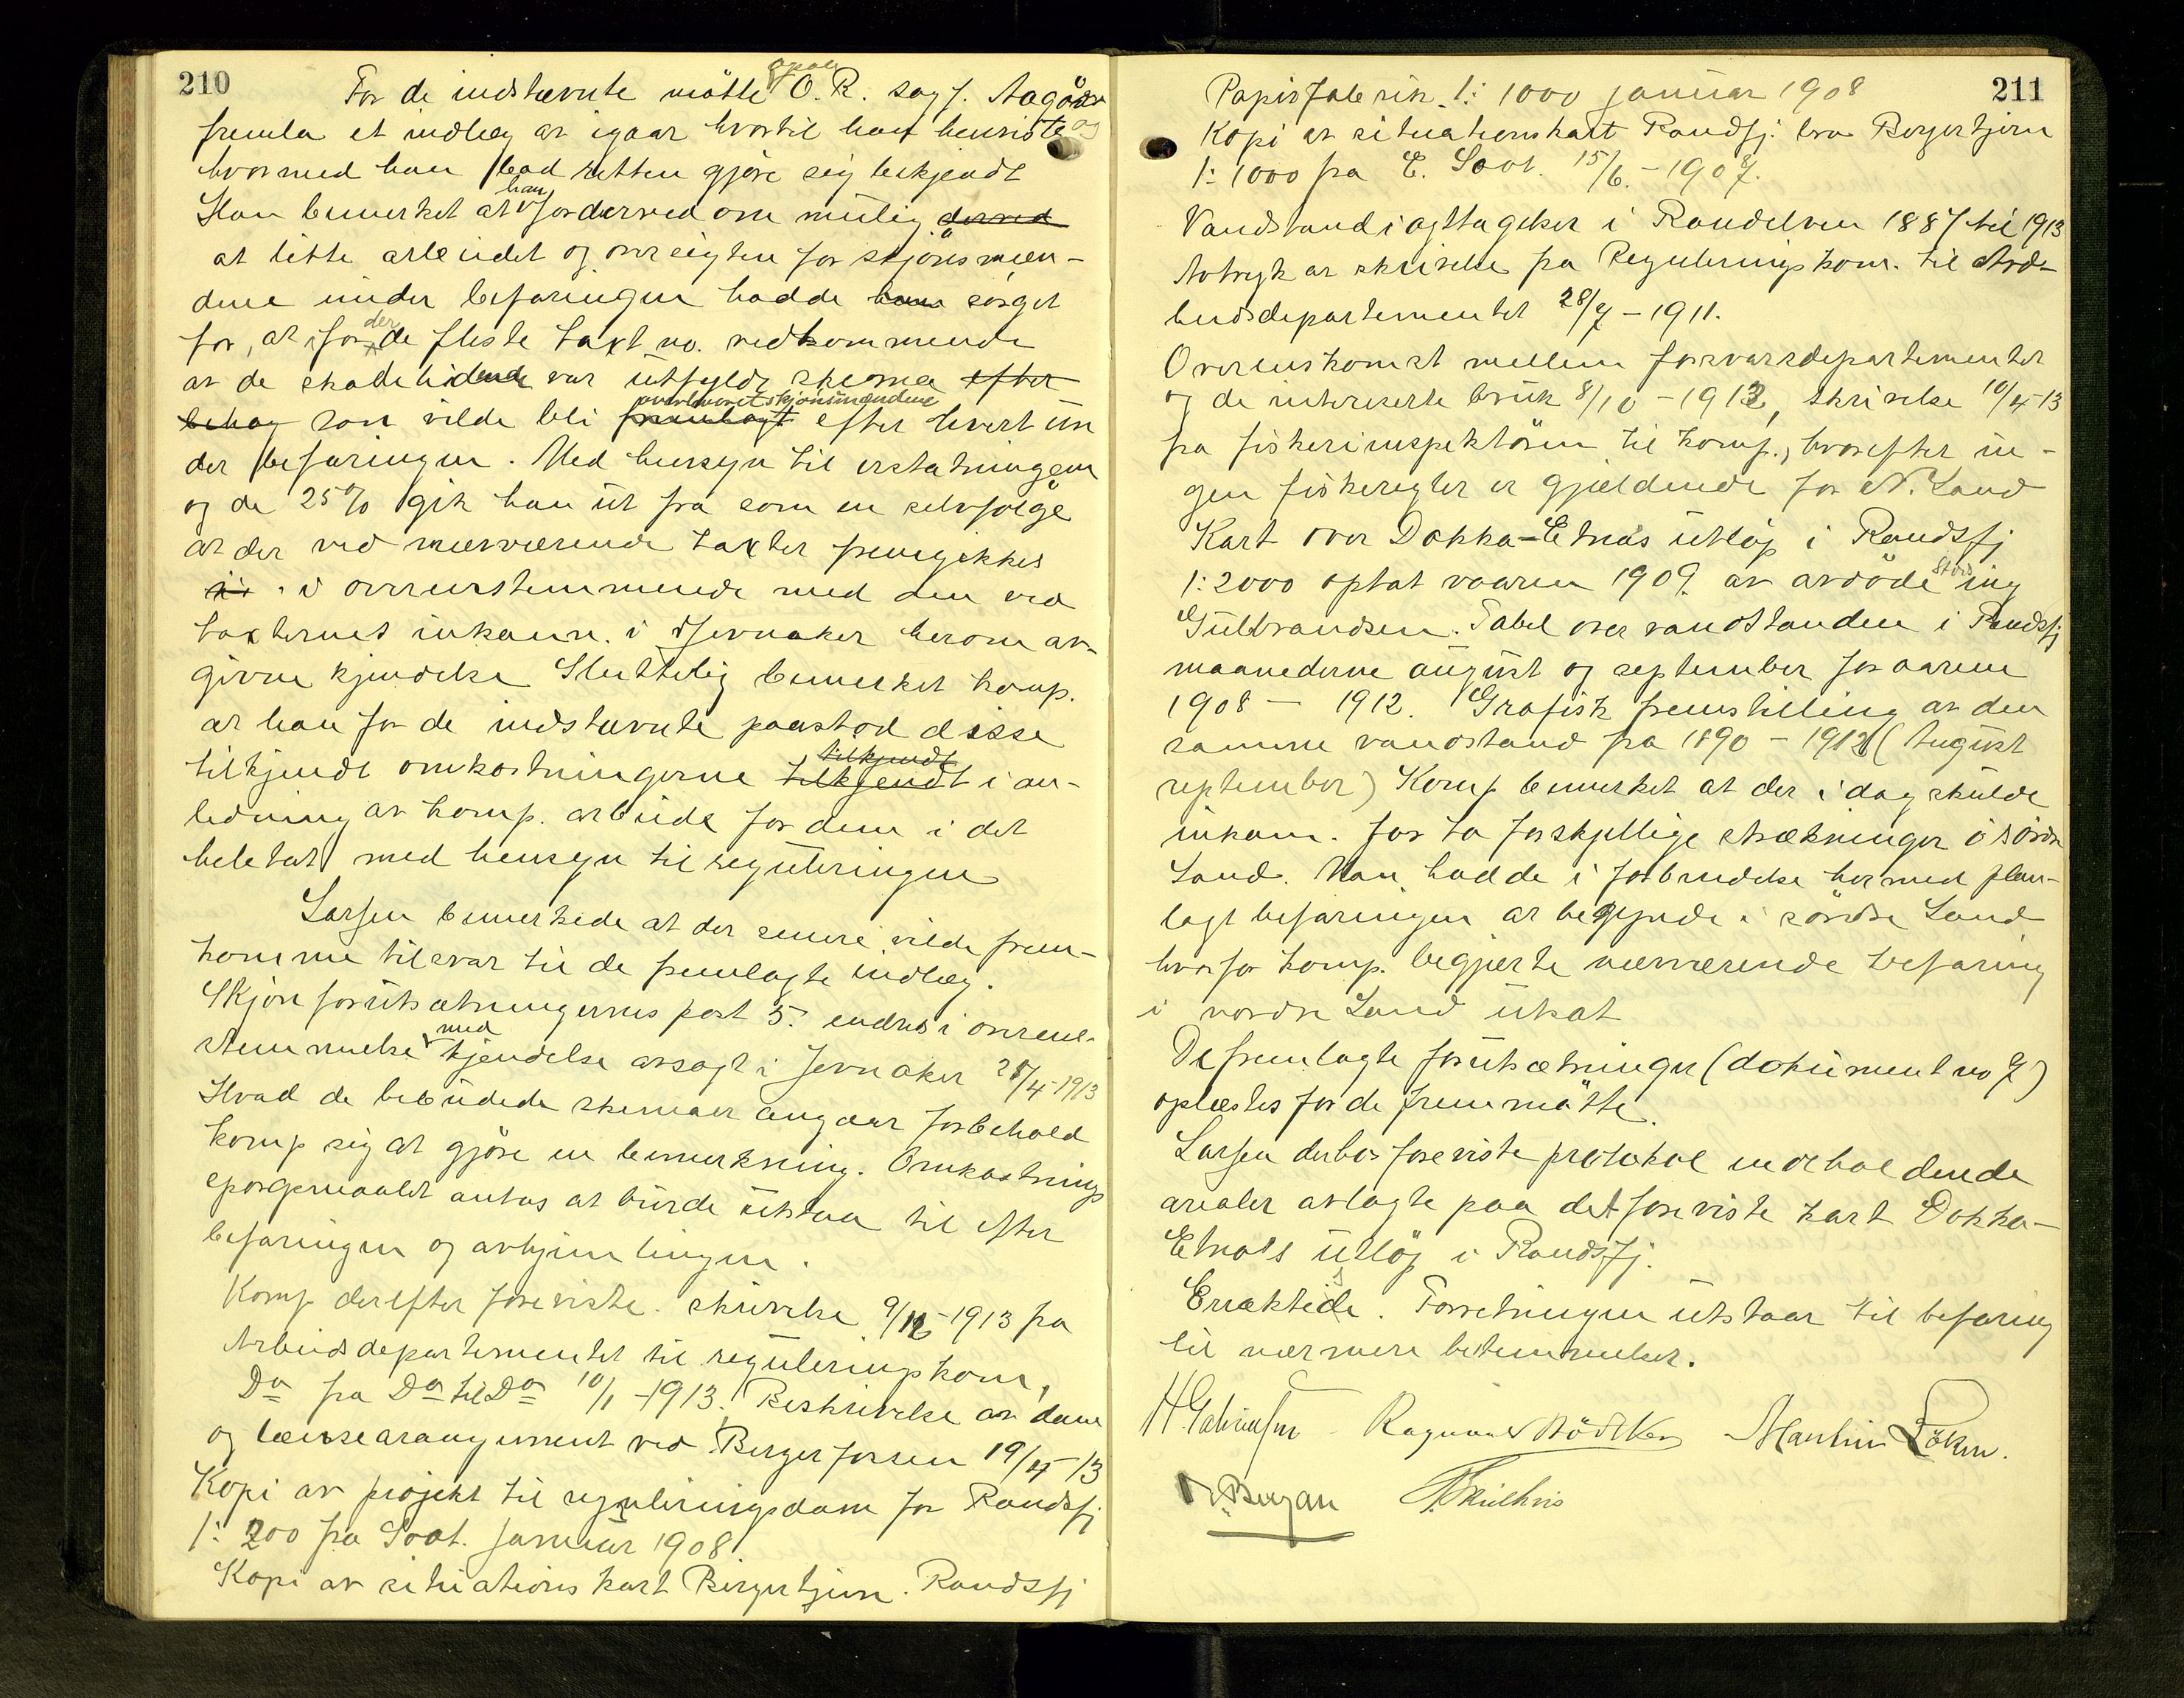 210
For de indstevnte mötte O. R. sagf. Aagaar
fremla et indlæg av igaar hvortil han henviste og
hvormed han bad retten gjöre sig bekjendt
Han bemerket at han for derved om mulig derved
at lette arbeidet og oversigten for skjönsmæn-
dene under befaringen hadde han sörget
for, at der for de fleste takst no. vedkommende
av de skadelidende var utfylde skema efter
behag som vilde bli fremlagt overleveret skjönsmændene efter hvert un
der befaringen. Med hensyn til erstatningen
og de 25% gik han ut fra som en selvfölge
at der ved nærværende takster fremgikkes
i overensstemmende med den ved
taksternes inkam. i Jevnaker herom av-
givne kjendelse Sluttelig bemerket komp.
at han for de indstevnte paastod disse
tilkjendt omkostningerne tilkjendt tilkjendt i an-
ledning av komp. arbeide for dem i det
hele tat med hensyn til reguleringen
Larsen bemerkede at der senere vilde frem-
komme tilsvar til de fremlagte indlæg.
Skjönforutsætningernes post 5. endres i overens-
stemmelse med kjendelse avsagt i Jevnaker 28/4-1913
Hvad de bebudede skemaer angaar forbeholdt
komp sig at gjöre en bemerkning. Omkostnings
spörgsmaalet antas at burde utstaa til efter
befaringen og avhjemlingen.
Komp derefter foreviste skrivelse 9/12-1913 fra
Arbeidsdepartementet til reguleringskom,
Do fra Do til Do 10/1-1913. Beskrivelse av dam
og lænsearangement ved Bergerfossen 19/4-13
Kopi av projekt til reguleringsdam for Randsfj
1: 200 fra Soot. Januar 1908
Kopi av situations kart Bergertjern. Randsfj
211
Papirfabrik. 1: 1000 januar 1908
Kopi av situationskart Randsfj. bro Bergertjern
1: 1000 fra E. Soot. 15/6.-1907.
Vandstandiagttagelser i Randelven 1887 til 1913
Avtryk av skrivelse fra Reguleringskom. til Ar-
beidsdepartementet 28/7-1911.
Overenskomst mellem forsvarsdepartementet
og de interesserte bruk 8/10-1912, skrivelse 10/4-13
fra fiskeriinspektören til komp., hvorefter in-
gen fiskeregler er gjældende for N. Land
Kart over Dokka-Etnas utlöp i Randsfj
1:2000 optat vaaren 1909. av avdöde ing
Gulbrandsen. Tabel over vandstanden i Randsfj
maanederne august og september for aarene
1908 - 1912. Grafisk fremstilling av den
samme vandstand fra 1890 - 1912 (August
september) Komp bemerket at der i dag skulde
inkam. for to forskjellige strækninger i söndre
Land. Man hadde i forbindelse hermed plan-
lagt befaringen at begynde i söndre Land
hvorfor komp. begjærte nærværende befaring
i nordre Land utsat
De fremlagte forutsætninger (dokument no 7)
oplæstes for de fremmötte.
Larsen derhos foreviste protokol indeholdende
arealer avlagte paa det foreviste kart Dokka-
Etna's utlöp i Randsfj.
Eraktede. Forretningen utstaar til befaring
til nærmere bestemmelser.
Ragnvald Bödtker Martin Löken.